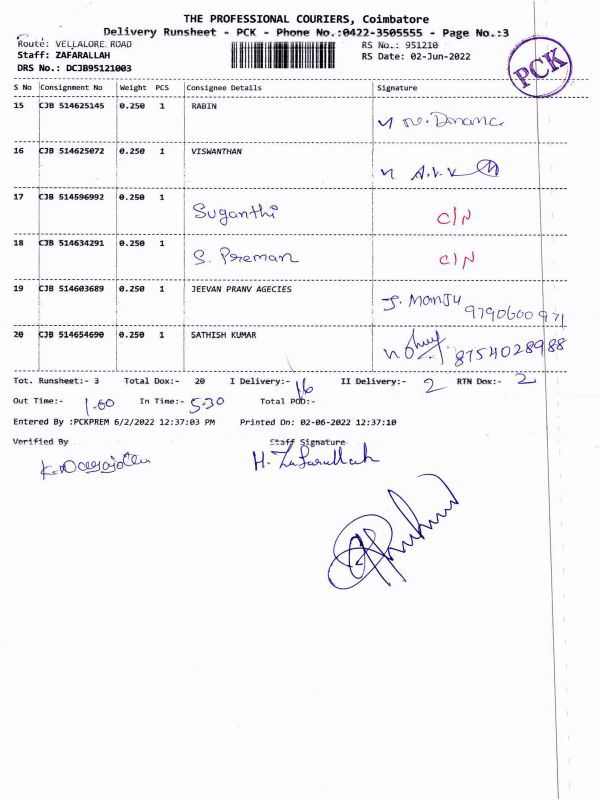 THE PROFESSIONAL COURIERS, Coimbatore
Delivery Runsheet - PCK - Phone No.:0422-3505555 - Page No.:3
Route: VELLALORE ROAD RS No.: 951210
Staff: ZAFARALLAH RS Date: 02-Jun-2022
DRS No.: DCJB95121003
PCK
S No Consignment No Weight PCS Consignee Details Signature
15 CJB 514625145 0.250 1 RABIN
16 CJB 514625072 0.250 1 VISWANTHAN
17 CJB 514596992 0.250 1 Suganthi C/N
18 CJB 514634291 0.250 1 S. Preman C/N
19 CJB 514603689 0.250 1 JEEVAN PRANV AGECIES J. Manju 9790600971
20 CJB 514654690 0.250 1 SATHISH KUMAR 8754028988
Tot. Runsheet:- 3 Total Dox:- 20 I Delivery:- 16 II Delivery:- 2 RTN Dox:- 2
Out Time:- 1-00 In Time:- 5-30 Total POD:-
Entered By :PCKPREM 6/2/2022 12:37:03 PM Printed On: 02-06-2022 12:37:10
Verified By Staff Signature
H. Zafarullah